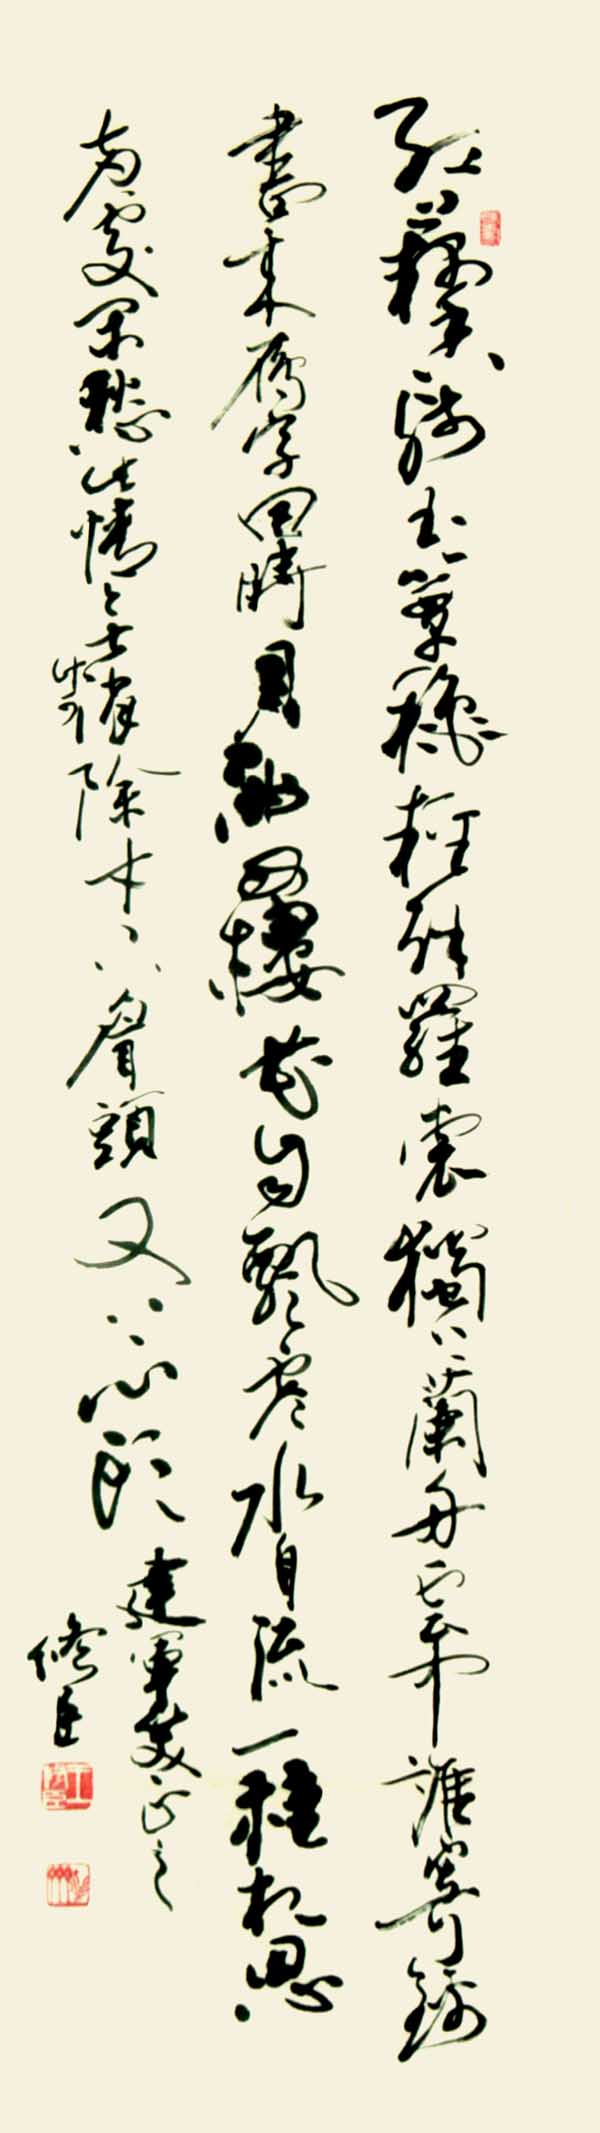 紅藕香殘玉簟秋輕解羅裳獨上蘭舟雲中誰寄錦
書來雁字回時月滿西樓花自飄零水自流一種相思
兩處閑愁此情無計可消除才下眉頭又上心頭
建軍笑正之
修臣